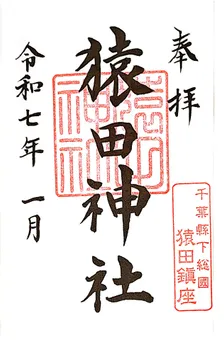 奉拝
猿田神社
令和七年 一月
千葉縣下総國
猿田鎮座